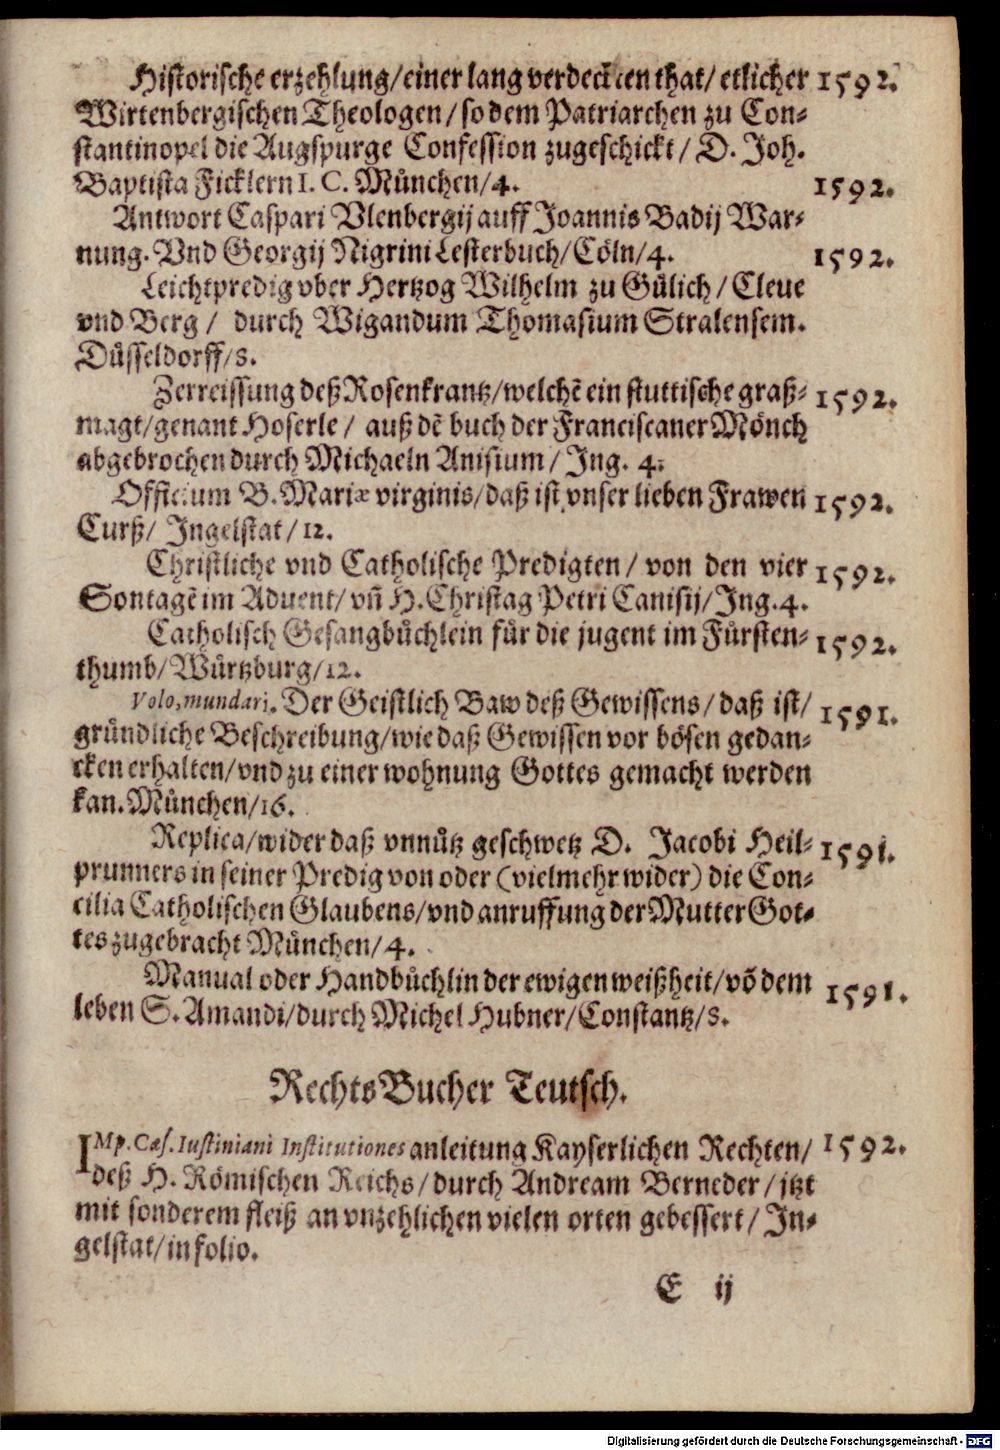 Historische erzehlung/einer lang verdeckten that/etlicher 1592.
Wirtenbergischen Theologen/so dem Patriarchen zu Con-
stantinopel die Augspurge Confession zugeschickt/ D. Joh.
Baptista Ficklern I. C. München/4. 1592.
Antwort Caspari Vlenbergij auff Joannis Badij War-
nung. Vnd Georgij Nigrini Lesterbuch/Cöln/4. 1592.
Leichtpredig vber Hertzog Wilhelm zu Gülich/Cleue
vnd Berg/ durch Wigandum Thomasium Stralensem.
Düsseldorff/8.
Zerreissung deß Rosenkrantz/welchẽ ein stuttische graß- 1592.
magt/genant Hoserle/ auß dẽ buch der Franciscaner Mönch
abgebrochen durch Michaeln Anisium/ Ing. 4.
Officium B. Mariæ virginis/daß ist vnser lieben Frawen 1592.
Curß/ Ingelstat/12.
Christliche vnd Catholische Predigten/ von den vier 1592.
Sontagẽ im Aduent/vñ H. Christag Petri Canisij/Ing.4.
Catholisch Gesangbüchlein für die jugent im Fürsten- 1592.
thumb/Würtzburg/12.
Volo, mundari. Der Geistlich Baw deß Gewissens/daß ist/ 1591.
gründliche Beschreibung/wie daß Gewissen vor bösen gedan-
cken erhalten/vnd zu einer wohnung Gottes gemacht werden
kan. München/16.
Replica/wider daß vnnütz geschwetz D. Jacobi Heil- 1591.
prunners in seiner Predig von oder (vielmehr wider) die Con-
cilia Catholischen Glaubens/vnd anruffung der Mutter Got-
tes zugebracht München/4.
Manual oder Handbüchlin der ewigen weißheit/võ dem 1591.
leben S. Amandi/durch Michel Hubner/Constantz/8.
Rechts Bucher Teutsch.
IMp. Cæs. Iustiniani Institutiones anleitung Kayserlichen Rechten/ 1592.
deß H. Römischen Reichs/durch Andream Berneder/jtzt
mit sonderem fleiß an vnzehlichen vielen orten gebessert/In-
gelstat/in folio.
E ij
Digitalisierung gefördert durch die Deutsche Forschungsgemeinschaft - DFG